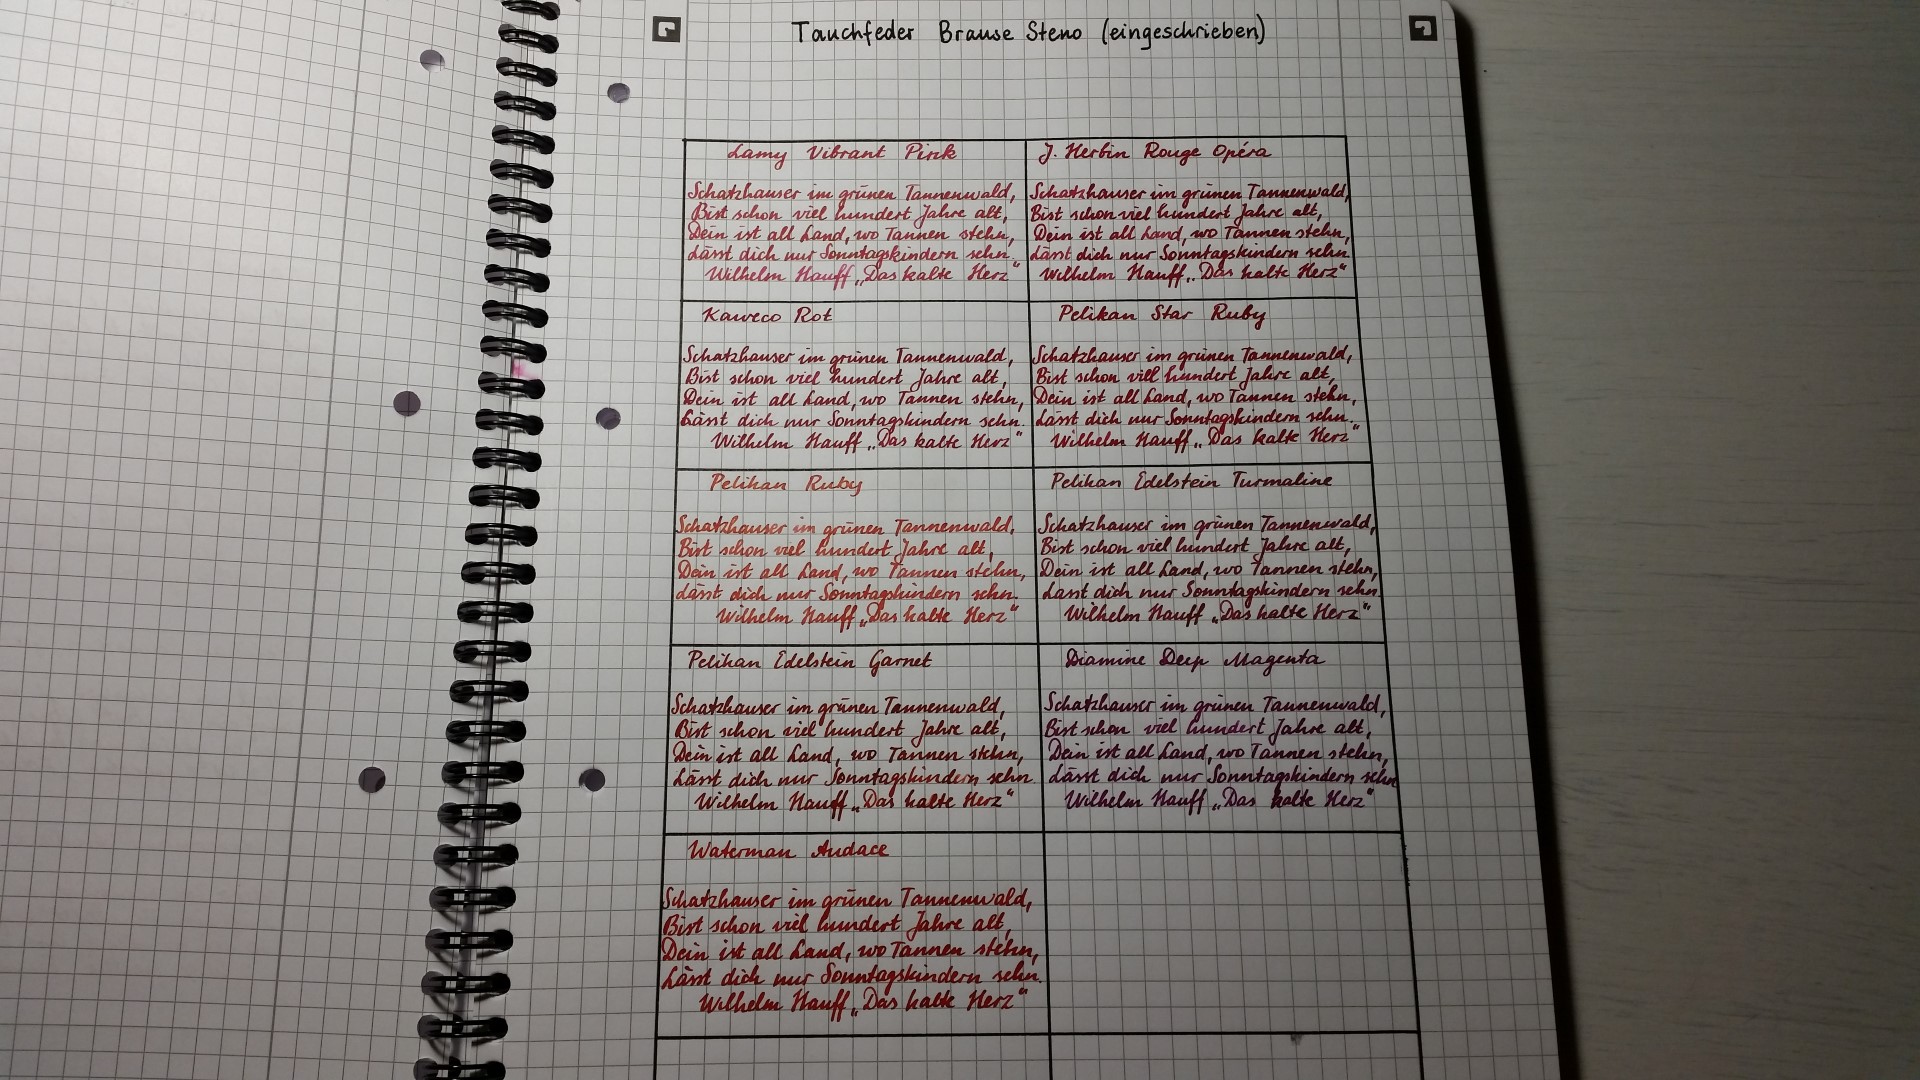 Tauchfeder Brause Steno (eingeschrieben)
Lamy Vibrant Pink
Schatzhauser im grünen Tannenwald,
Bist schon viel hundert Jahre alt,
Dein ist all Land, wo Tannen stehn,
Lässt dich nur Sonntagskindern sehn.
Wilhelm Hauff „Das kalte Herz“
J. Herbin Rouge Opéra
Schatzhauser im grünen Tannenwald,
Bist schon viel hundert Jahre alt,
Dein ist all Land, wo Tannen stehn,
Lässt dich nur Sonntagskindern sehn
Wilhelm Hauff „Das kalte Herz“
Kaweco Rot
Schatzhauser im grünen Tannenwald,
Bist schon viel hundert Jahre alt,
Dein ist all Land, wo Tannen stehn,
Lässt dich nur Sonntagskindern sehn.
Wilhelm Hauff „Das kalte Herz“
Pelikan Star Ruby
Schatzhauser im grünen Tannenwald,
Bist schon viel hundert Jahre alt,
Dein ist all Land, wo Tannen stehn,
Lässt dich nur Sonntagskindern sehn.
Wilhelm Hauff „Das kalte Herz“
Pelikan Ruby
Schatzhauser im grünen Tannenwald,
Bist schon viel hundert Jahre alt,
Dein ist all Land, wo Tannen stehn,
Lässt dich nur Sonntagskindern sehn.
Wilhelm Hauff „Das kalte Herz“
Pelikan Edelstein Turmaline
Schatzhauser im grünen Tannenwald,
Bist schon viel hundert Jahre alt,
Dein ist all Land, wo Tannen stehn,
Lässt dich nur Sonntagskindern sehn
Wilhelm Hauff „Das kalte Herz“
Pelikan Edelstein Garnet
Schatzhauser im grünen Tannenwald,
Bist schon viel hundert Jahre alt,
Dein ist all Land, wo Tannen stehn,
Lässt dich nur Sonntagskindern sehn.
Wilhelm Hauff „Das kalte Herz“
Diamine Deep Magenta
Schatzhauser im grünen Tannenwald,
Bist schon viel hundert Jahre alt,
Dein ist all Land, wo Tannen stehn,
Lässt dich nur Sonntagskindern sehn
Wilhelm Hauff „Das kalte Herz“
Waterman Audace
Schatzhauser im grünen Tannenwald,
Bist schon viel hundert Jahre alt,
Dein ist all Land, wo Tannen stehn,
Lässt dich nur Sonntagskindern sehn.
Wilhelm Hauff „Das kalte Herz“